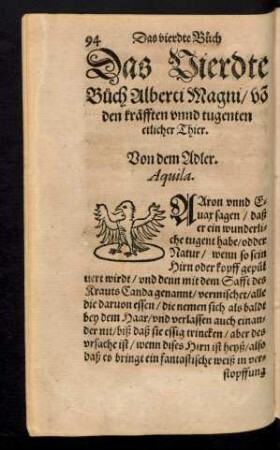 94 Das vierdte Bůch
Das Vierdte
Bůch Alberti Magni / võ
den kräfften vnnd tugenten
etlicher Thier.
Von dem Adler.
Aquila.
AAron vnnd E-
uax sagen / daß
er ein wunderli-
che tugent habe / odder
Natur / wenn so sein
Hirn oder kopff gepül
uert wirdt / vnd denn mit dem Safft des
Krauts Canda genannt / vermischet / alle
die daruon essen / die nemen sich als baldt
bey dem Haar / vnd verlassen auch einan-
der nit / biß daß sie essig trincken / aber des
vrsache ist / wenn dises Hirn ist heyß / also
daß es bringt ein fantastische weiß in ver-
stopffung